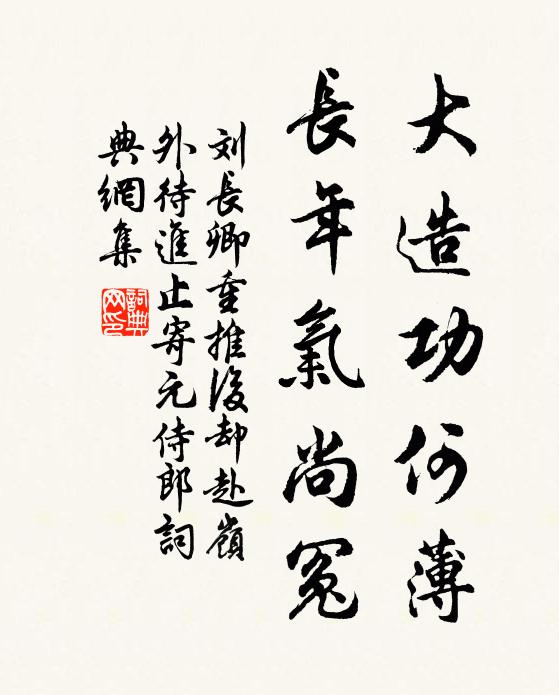 大造功何薄
長年氣尚冤
刘長卿重推後却赴嶺
外待進止寄元侍郎詞
典網集
詞典
网印